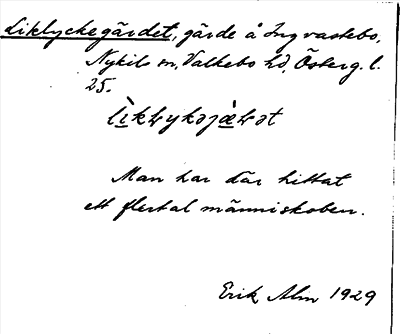 Liklyckegärdet, gärde å Ingvastebo,
Nykils sn, Valkebo hd, Österg. l.
25.
Man har där hittat
ett flertal människoben.
Erik Alin 1929